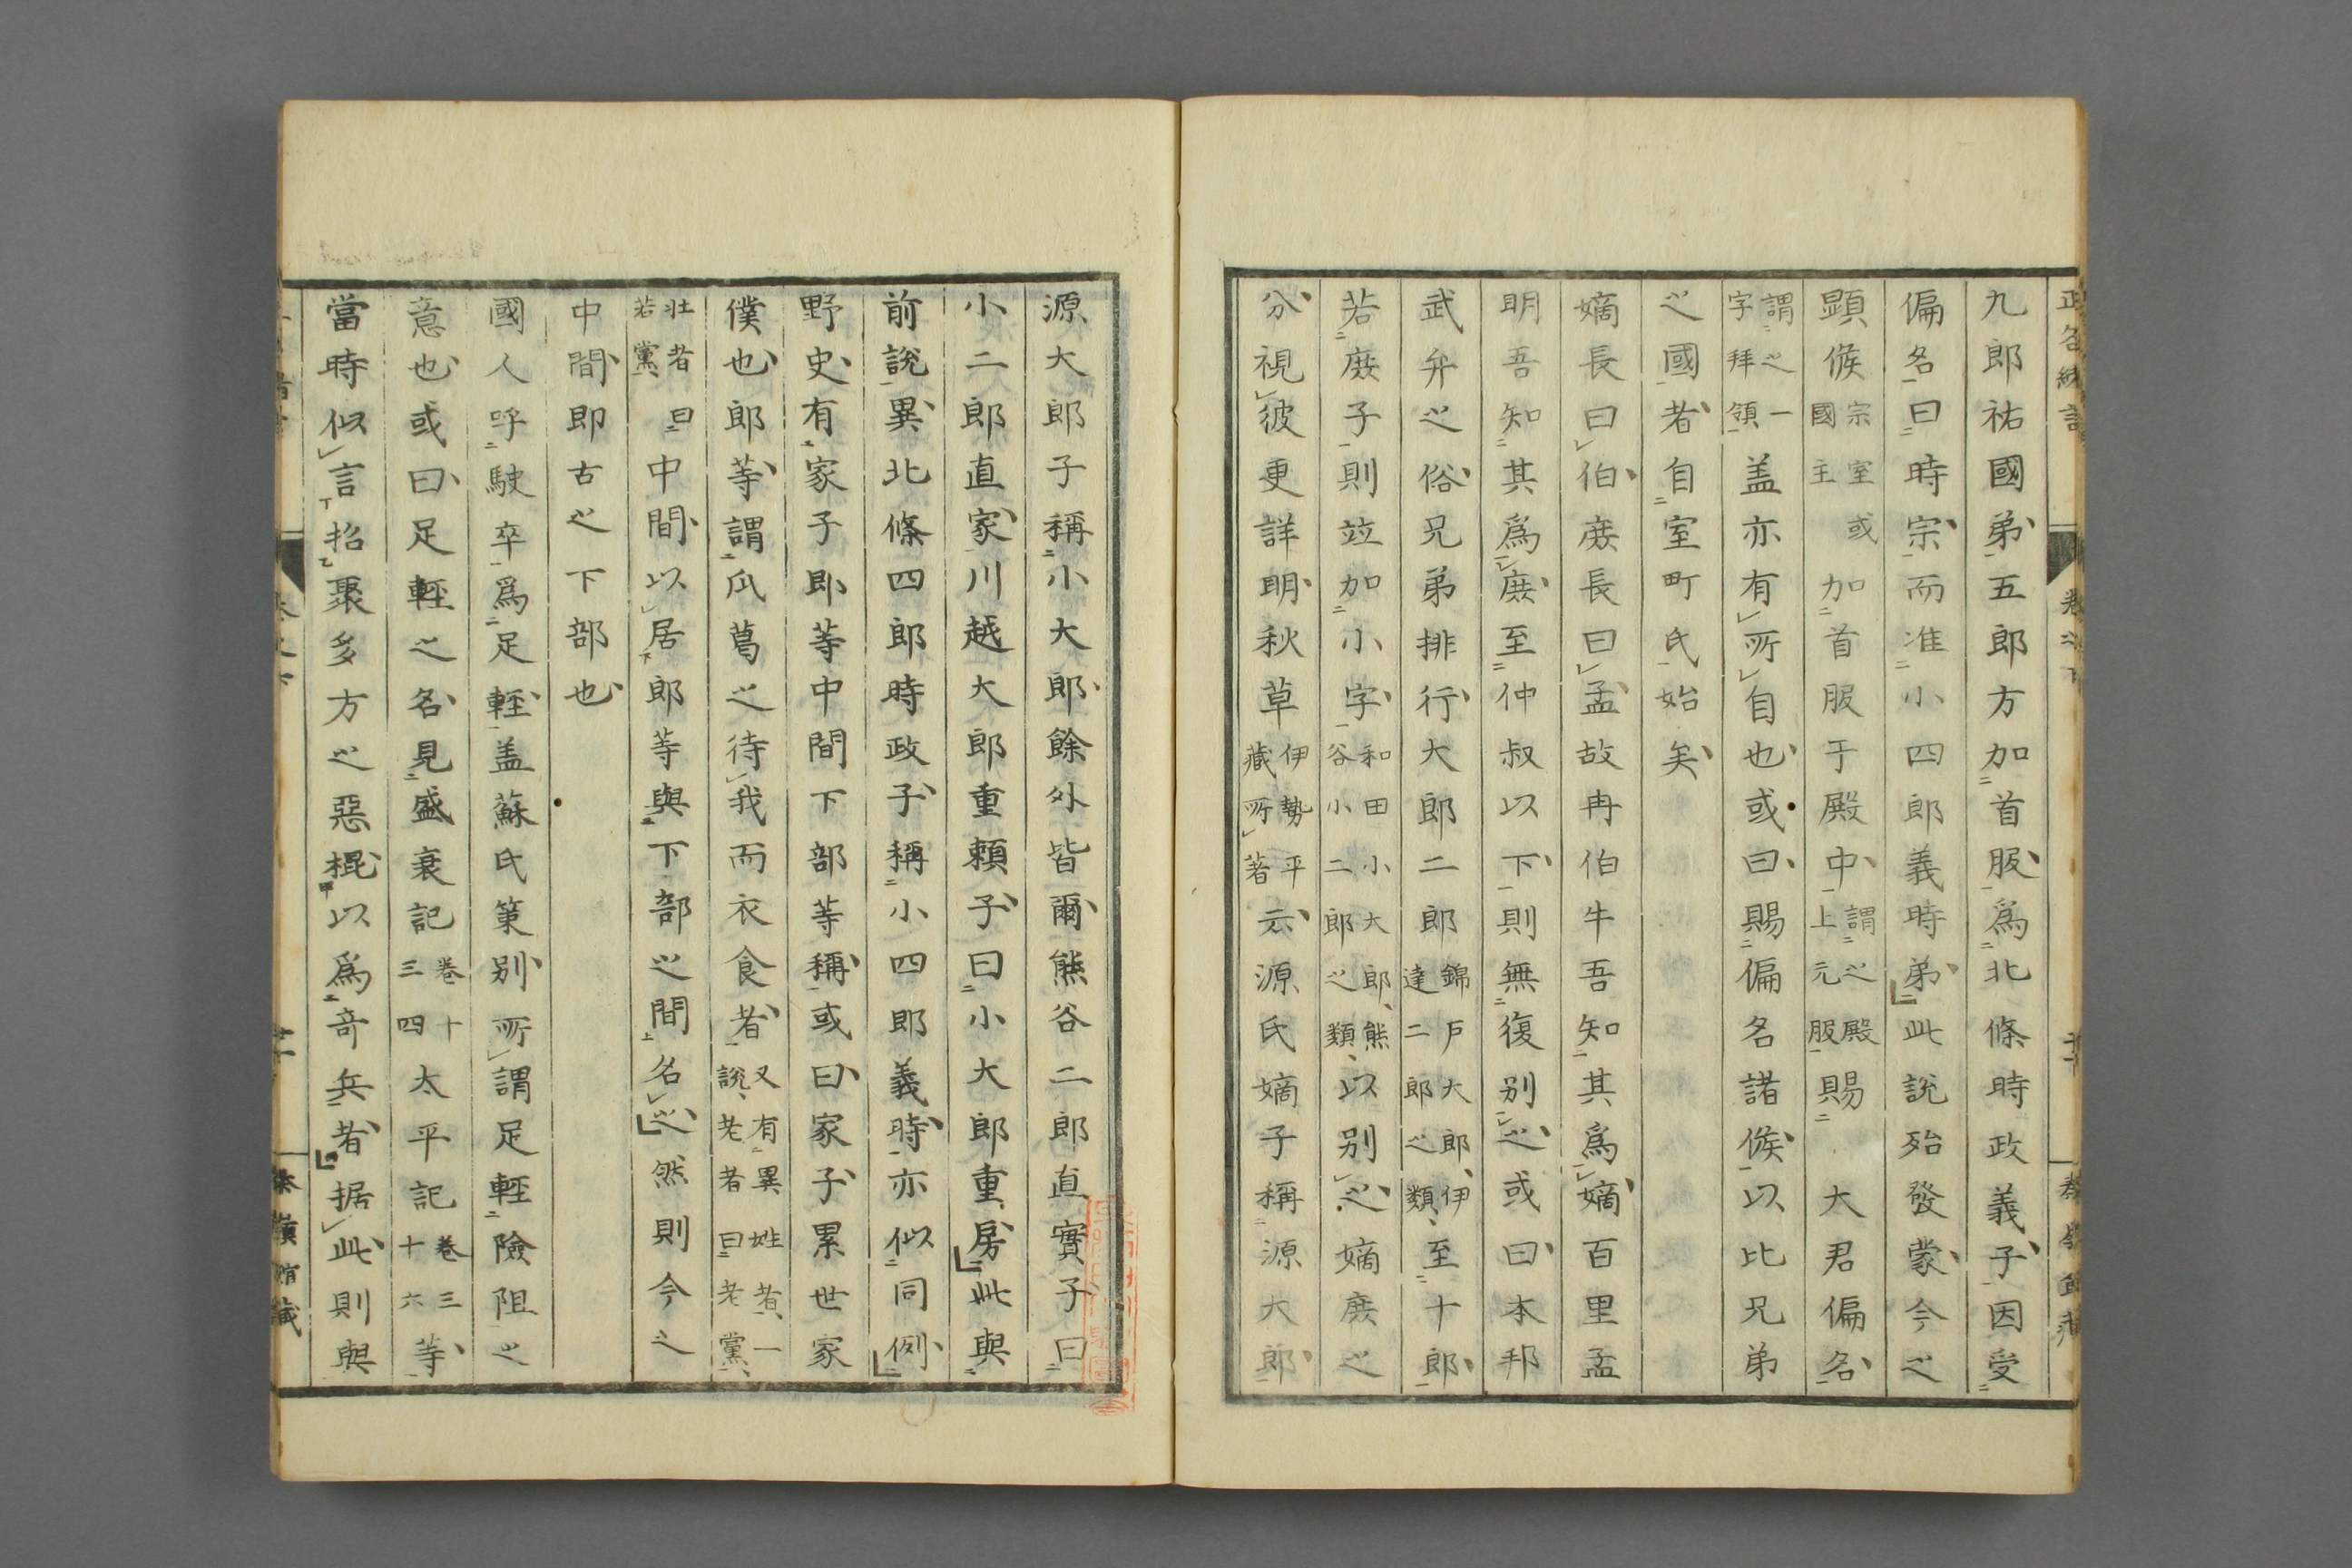 九郎祐國弟五郎方加首服爲北條時政義子因受
偏名曰時宗而准小四郎義時弟此說殆發蒙今之
顕候宗室或國主加首服于殿中謂之殿上元服賜大君偏名
謂之一字拜領盖亦有所自也或曰賜偏名諸候以比兄弟
之國者自室町氏始矣
嫡長曰伯庶長曰孟故冉伯牛吾知其爲嫡百里孟
明吾知其爲庶至仲叔以下則無復别之或曰本邦
武弁之俗兄弟排行大郎二郎錦戶大郎、伊達二郎之類、至十郎
若庶子則竝加小字和田小大郎、熊谷小二郎之類、以别之嫡庶之
分視彼更詳明秋草伊勢平藏所著云源氏嫡子稱源大郎
源大郎子稱小大郎餘外皆爾熊谷二郎直實子曰
小二郎直家川越大郎重頼子曰小大郎重房此與
前說異北條四郎時政子稱小四郎義時亦似同例
野史有家子郎等中間下部等稱或曰家子累世家
僕也郎等謂瓜葛之待我而衣食者又有異姓者、一說、老者曰老黨、
壯者曰若黨、中間以居郎等與下部之間名之然則今之
中間即古之下部也
國人呼駛卒爲足輕盖蘇氏策别所謂足輕險阻之
意也或曰足輕之名見盛衰記卷十三四太平記卷三十六等
當時似言招聚多方之惡棍以爲奇兵者据此則與